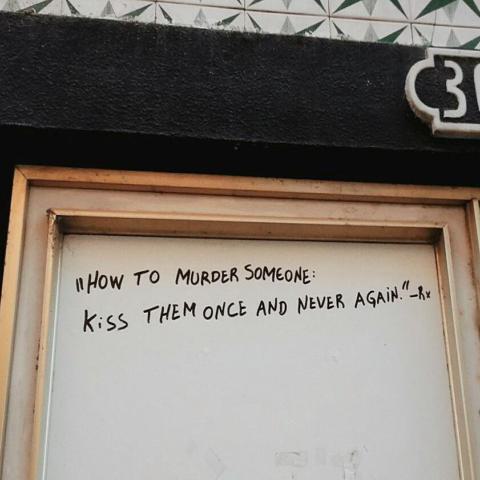 "HOW TO MURDER SOMEONE:
KiSS THEM ONCE AND NEVER AGAiN."-Rx